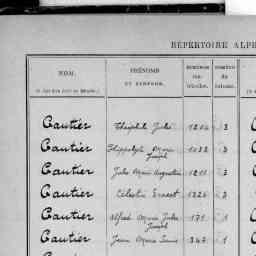 RÉPERTOIRE ALPH
NOM.
PRÉNOMS
ET SURNOMS.
NUMÉROS
NUMÉROS
du
Gautier Théophile Jules 1204 3
Gautier Hippolyte Marie
Joseph 1033 3
Gautier Jules Marie Augustin 1211 3
Gautier Célestin Ernest 1226 3
Gautier Alfred Marie Jules
Joseph 171 1
Gautier Jean Marie Louis 347 1